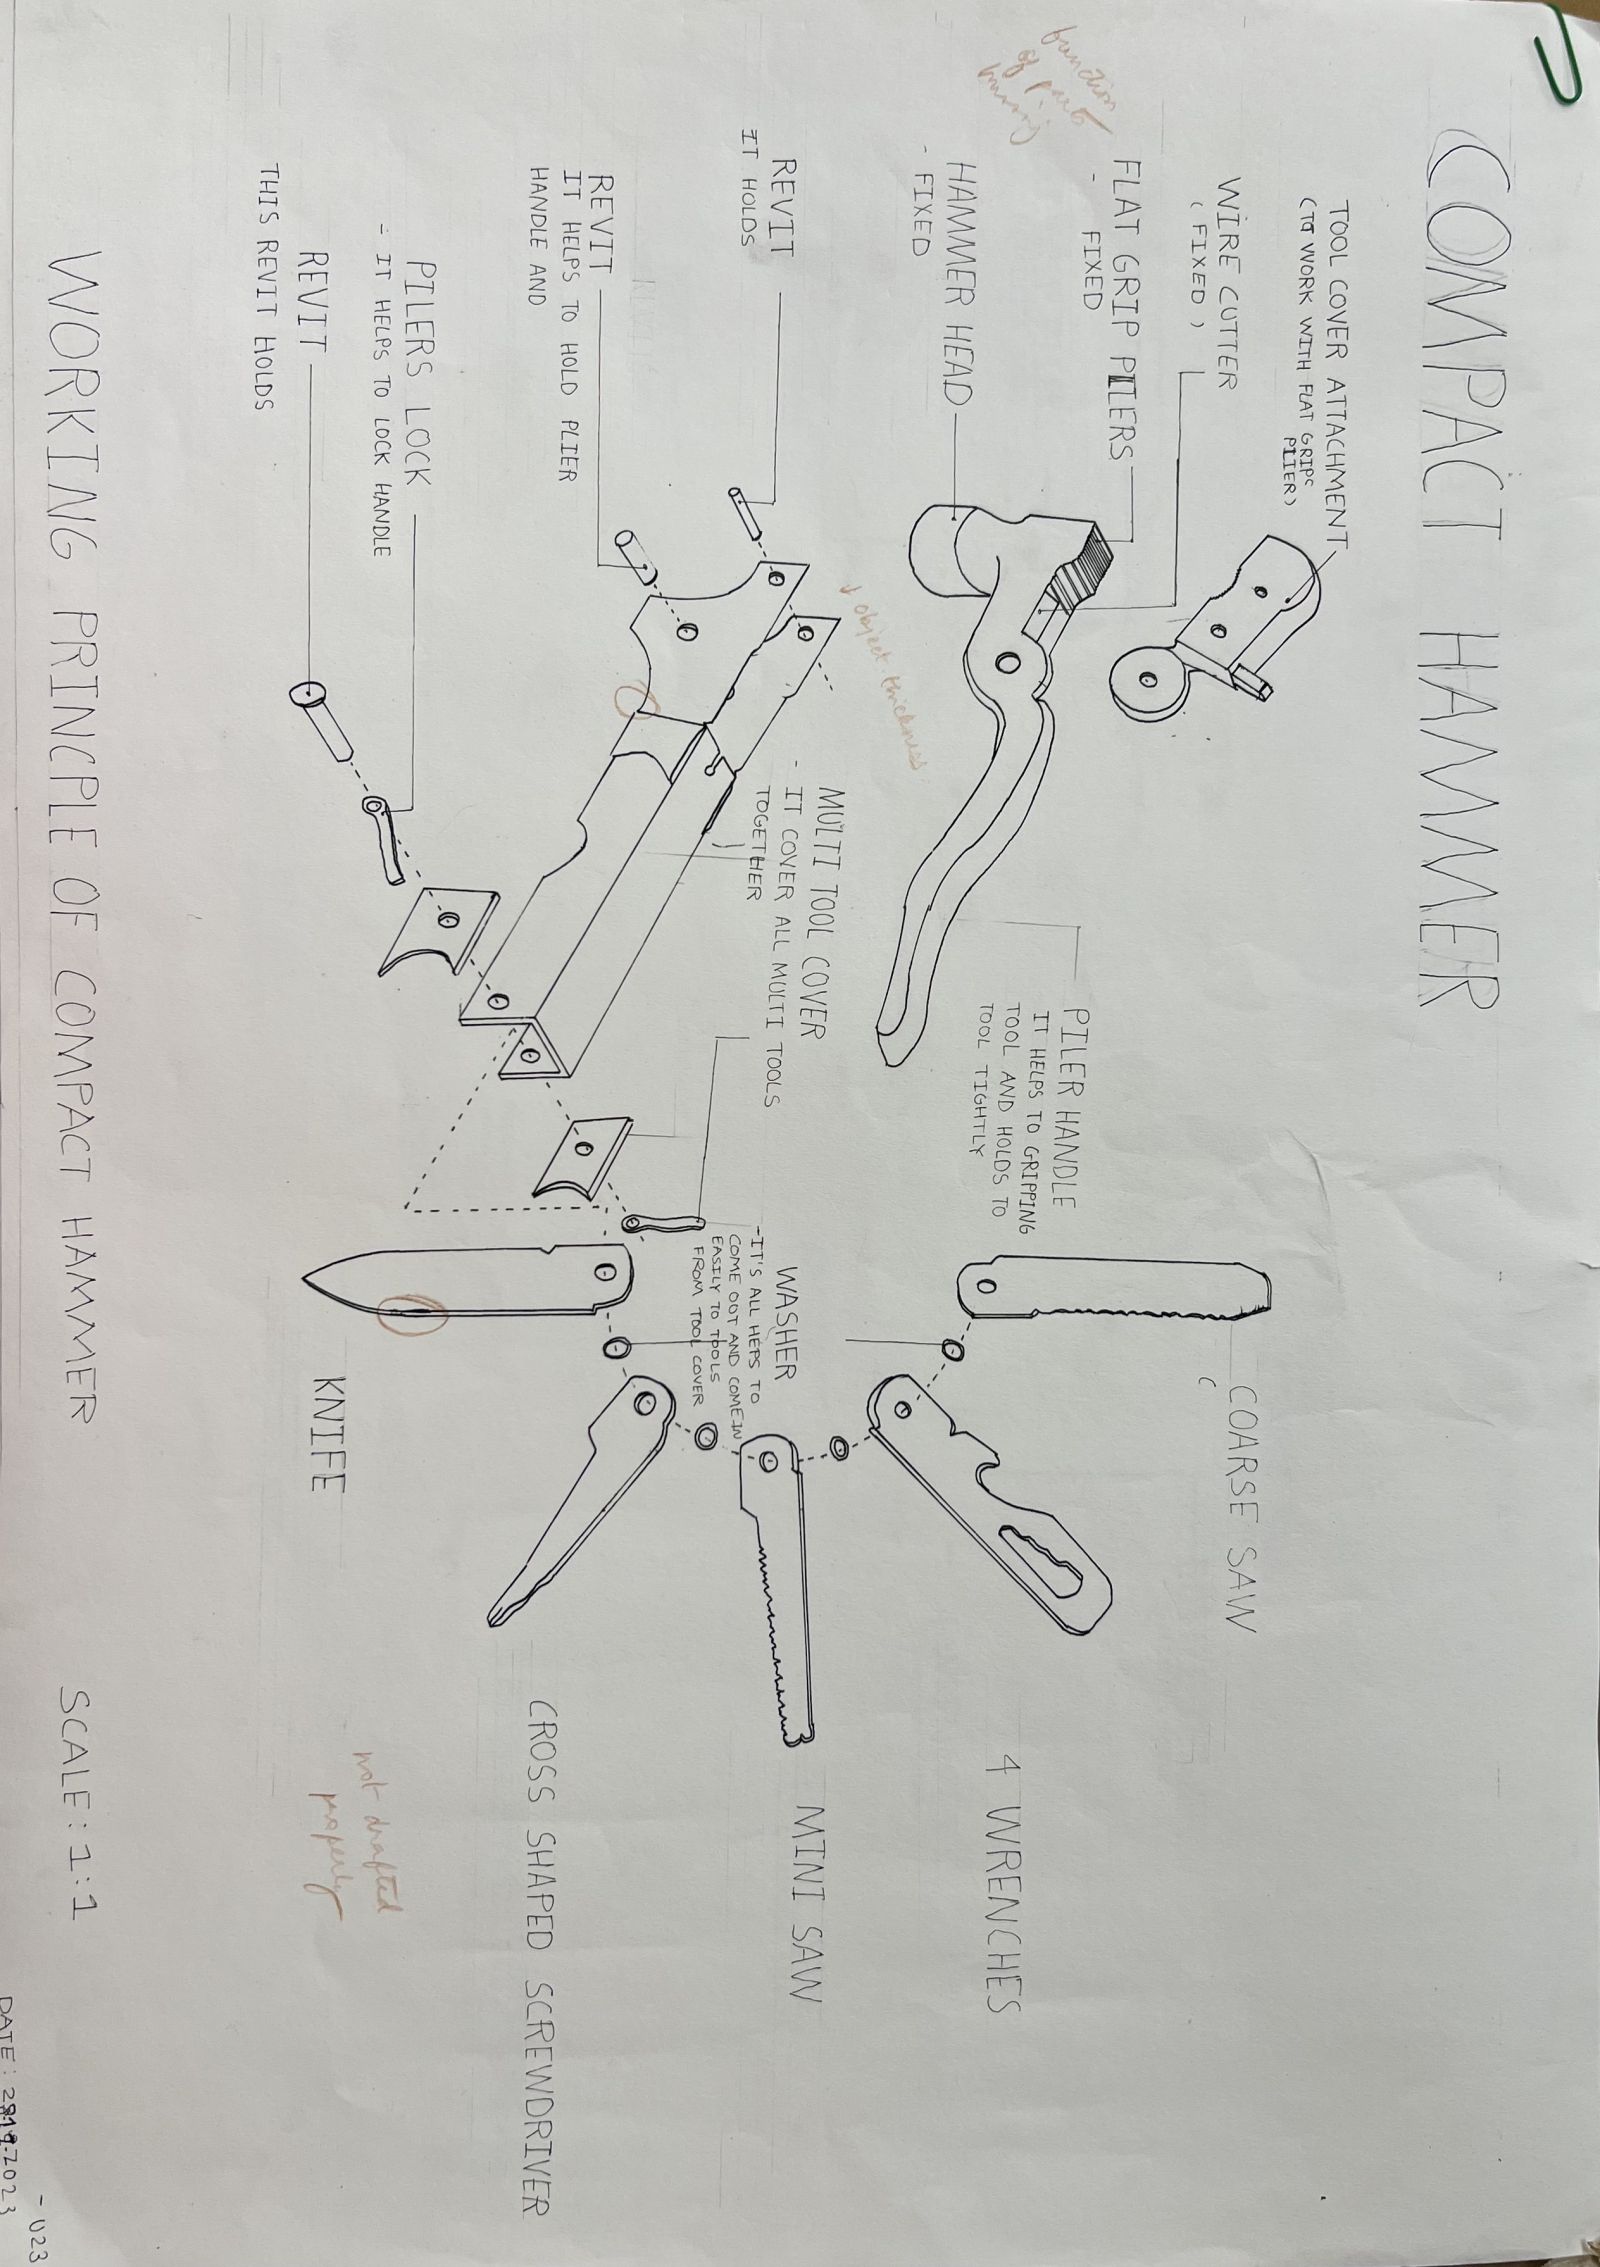 COMPACT HAMMER
TOOL COVER ATTACHMENT
(TO WORK WITH FLAT GRIPS
PLIER)
WIRE CUTTER
(FIXED)
FLAT GRIP PILERS
- FIXED
function
of parts
HAMMER HEAD
- FIXED
PILER HANDLE
IT HELPS TO GRIPPING
TOOL AND HOLDS TO
TOOL TIGHTLY
COARSE SAW
(
4 WRENCHES
REVIT
IT HOLDS
↓ object thickness
MULTI TOOL COVER
- IT COVER ALL MULTI TOOLS
TOGETHER
WASHER
-IT'S ALL HEPS TO
COME OOT AND COMEIN
EASILY TO TOOLS
FROM TOOL COVER
MINI SAW
REVIT
IT HELPS TO HOLD PLIER
HANDLE AND
CROSS SHAPED SCREWDRIVER
PILERS LOCK
- IT HELPS TO LOCK HANDLE
REVIT
THIS REVIT HOLDS
KNIFE
not drafted
properly
WORKING PRINCPLE OF COMPACT HAMMER
SCALE:1:1
- 023
DATE: